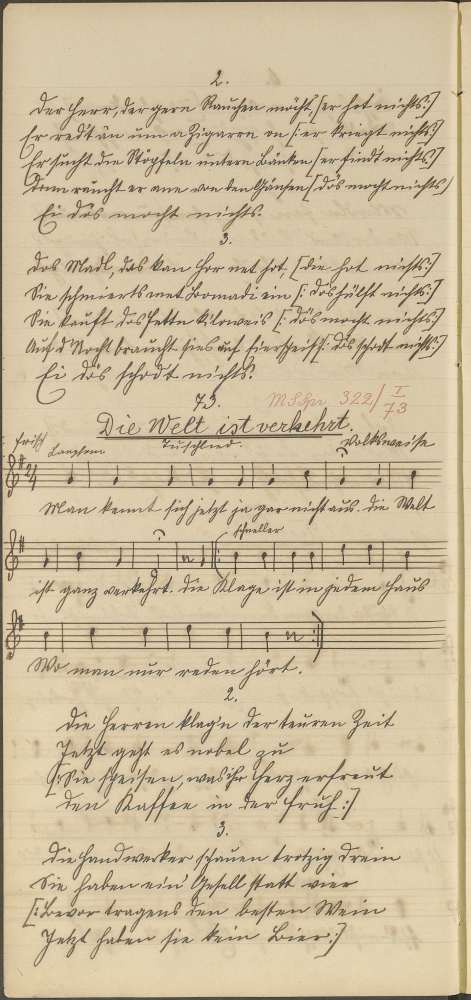 2.
Der Herr, der gern Rauchen möcht, [er hot nichts:]
Er red't än um a Zigarrn on [: er kriegt nichts:]
Er sucht die Stögfeln untern Bänken [er find't nichts:]
Dann raucht er ane von den [dös mocht nichts)
Ei dös mocht nichts.
3.
Das Madl, das kan Hor net hot, [die hot nichts:]
Sie schmierts met Bomadi ein [: dös hülft nichts:]
Sie kauft das Fettn kiloweis [: dös mocht nichts:]
Auf d'Nocht braucht sies auf Eierspeis [: dös schodt nichts:]
Ei dös schodt nichts.
73. M.S.Spr 322/I 73
Die Welt ist verkehrt.
Frisch Langsam Tuschlied. Volksweise
Man kennt sich jetzt ja gar nicht aus. die Welt
schneller
ist ganz verkehrt. die Klage ist in jedem Haus
Wo man nur reden hört.
2.
Die Herren klag'n der teuren Zeit
Jetzt geht es nobel zu
[: Sie speisen, was ihr Herz erfreut
den Kaffee in der Früh :]
3.
Die Handwerker schauen trotzig drein
Sie haben ein' Gesell statt vier
[: Bevor tragens den besten Wein
Jetzt haben sie kein Bier :]